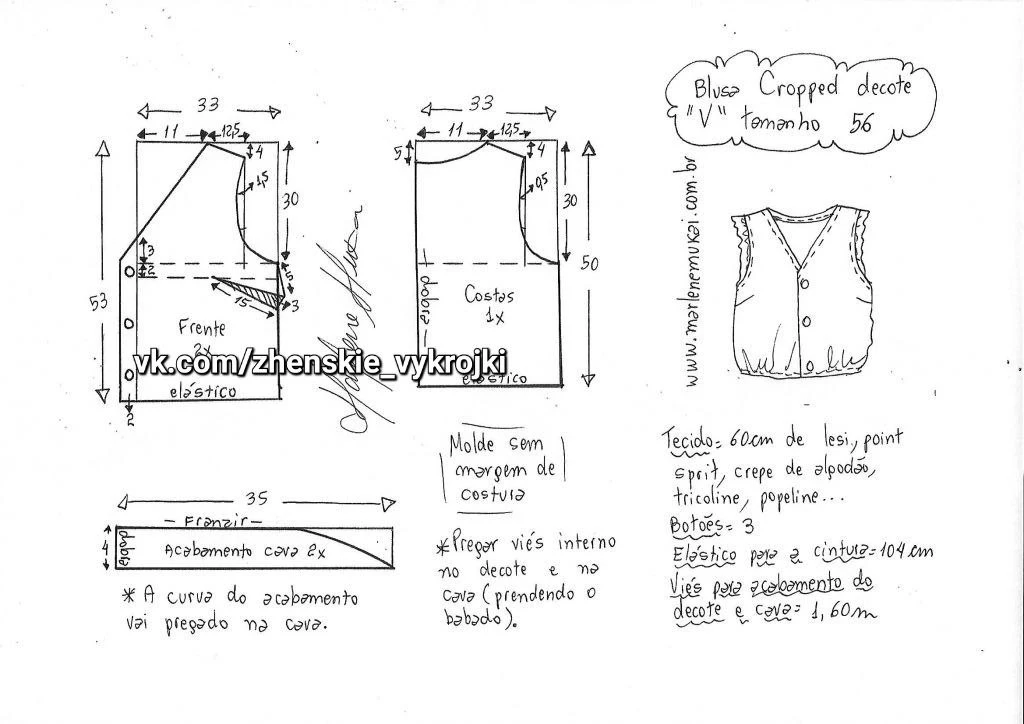 Blusa Cropped decote
"V" tamanho 56
www.marlenemukai.com.br
33
11
12,5
4
1,5
30
3
2
5
15
3
53
Frente
2x
elástico
2
33
11
12,5
5
4
0,5
30
50
dobra
Costas
1x
elástico
vk.com/zhenskie_vykrojki
Molde sem
margem de
costura
35
Franzir
dobra
4
Acabamento cava 2x
* A curva do acabamento
vai pregado na cava.
*Pregar viés interno
no decote e na
cava (prendendo o
babado).
Tecido= 60cm de lesi, point
sprit, crepe de algodão,
tricoline, popeline...
Botões= 3
Elástico para a cintura=104cm
Viés para acabamento do
decote e cava= 1,60m